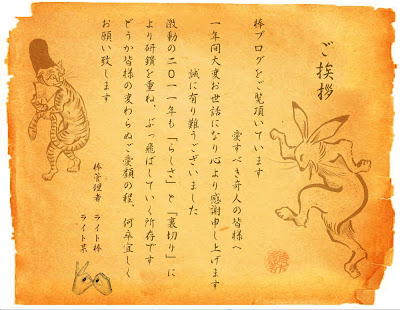 ご挨拶
棒ブログをご覧頂いています
愛すべき奇人の皆様へ
一年間大変お世話になり心より感謝申し上げます
誠に有り難うございました
激動の二〇一一年も「らしさ」と「裏切り」に
より研鑽を重ね、ぶっ飛ばしていく所存です
どうか皆様の変わらぬご愛顧の程、何卒宜しく
お願い致します
棒管理者 ライト棒
ライト某